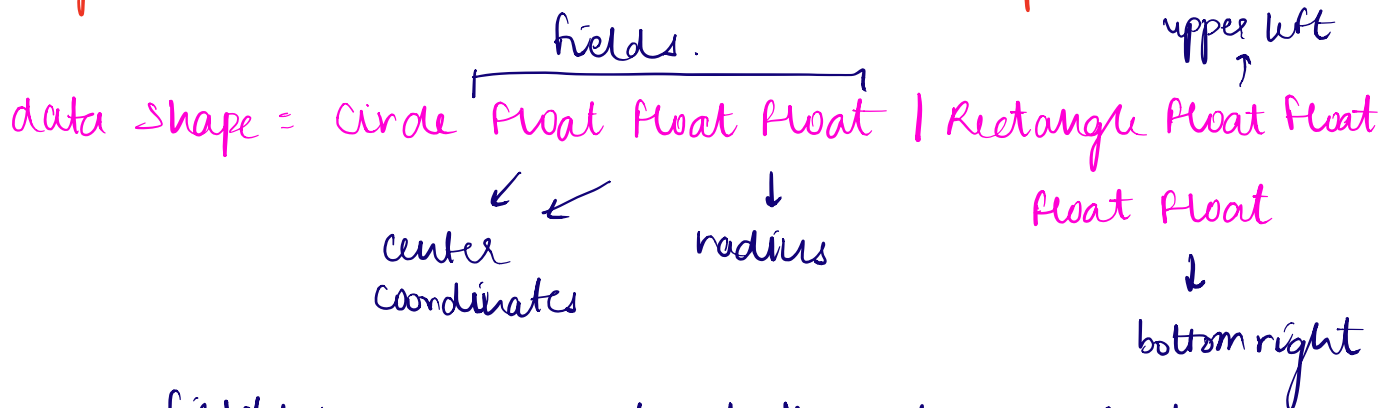 fields.
upper left
data shape = Circle Float Float Float | Rectangle Float Float
Float Float
center
coordinates
radius
bottom right